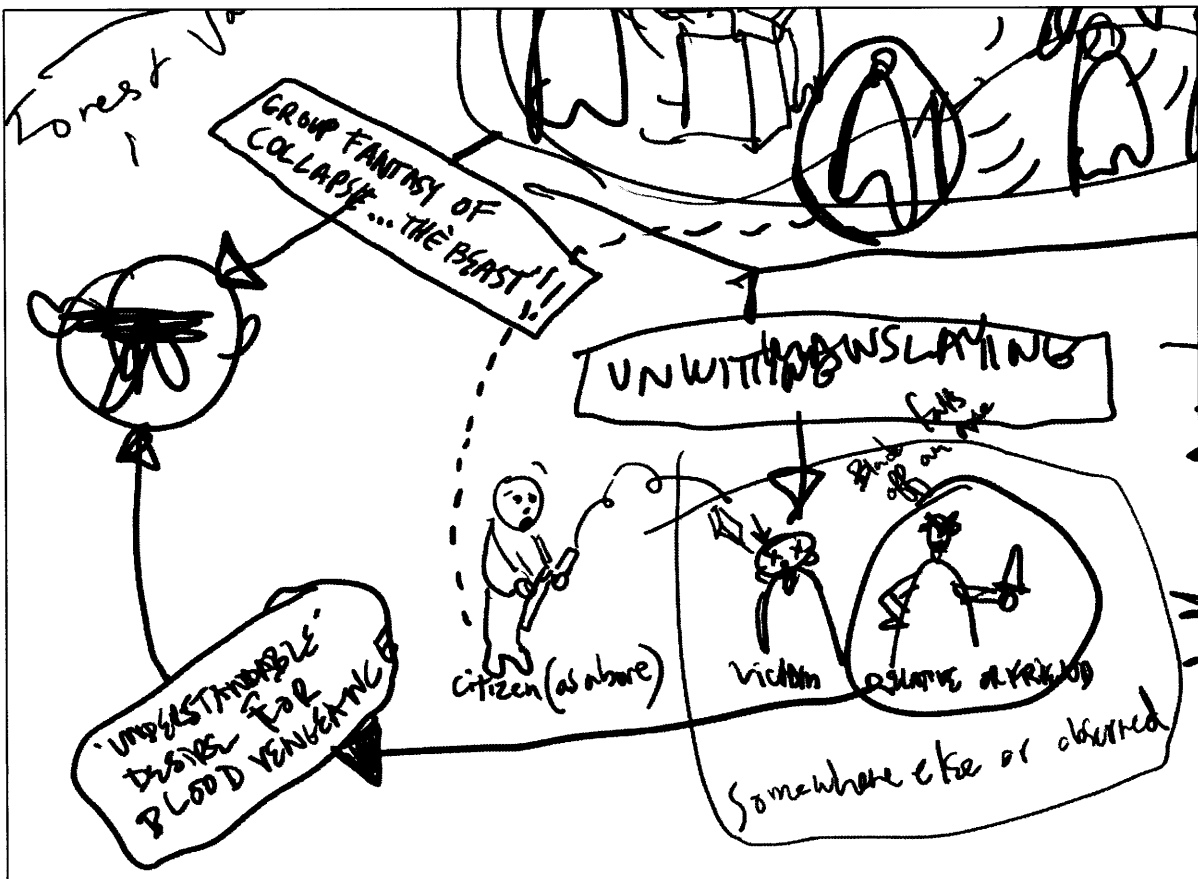 Forest
GROUP FANTASY OF
COLLAPSE... THE BEAST"!!!
UNWITTING MANSLAYING
Blade falls
off an axe
citizen (as above)
victim
RELATIVE OR FRIEND
Somewhere else or obscured
"UNDERSTANDABLE"
DESIRE FOR
BLOOD VENGEANCE